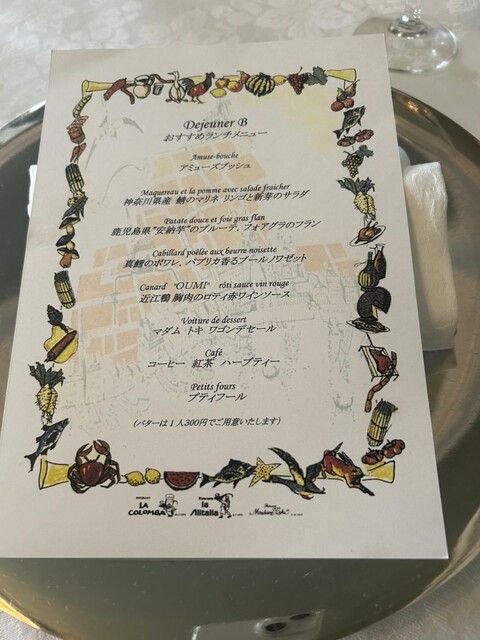 Dejeuner B
おすすめランチメニュー
Amuse-bouche
アミューズブッシュ
Maquereau et la pomme avec salade fraicher
神奈川県産 鯖のマリネ リンゴと新芽のサラダ
Patate douce et foie gras flan
鹿児島県"安納芋"のブルーテ、フォアグラのフラン
Cabillard poêlée aux beurre noisette
真鱈のポワレ、パプリカ香るブールノワゼット
Canard "OUMI" rôti sauce vin rouge
近江鴨 胸肉のロティ赤ワインソース
Voiture de dessert
マダム トキ ワゴンデセール
Café
コーヒー 紅茶 ハーブティー
Petits fours
プティフール
(バターは1人300円でご用意いたします)
LA COLOMBA
Ristorante la Alitalia
Madame Toki